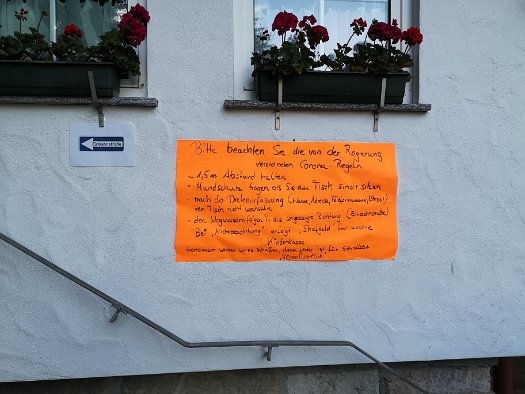 Einbahnstraße
Bitte beachten Sie die von der Regierung
verordneten Corona-Regeln
- 1,5m Abstand halten
- Mundschutz tragen bis Sie am Tisch sitzen
nach der Datenerfassung (Name, Adresse, Telefonnummer, Uhrzeit)
den Tisch nicht wechseln
- den Wegweisern folgen in die angezeigte Richtung (Einbahnstraße)
Bei "Nichtbeachtung" erfolgt "Strafgeld" für unsere
Kinderkasse
Gemeinsam werden wir es schaffen, denn jeder ist für sich selbst